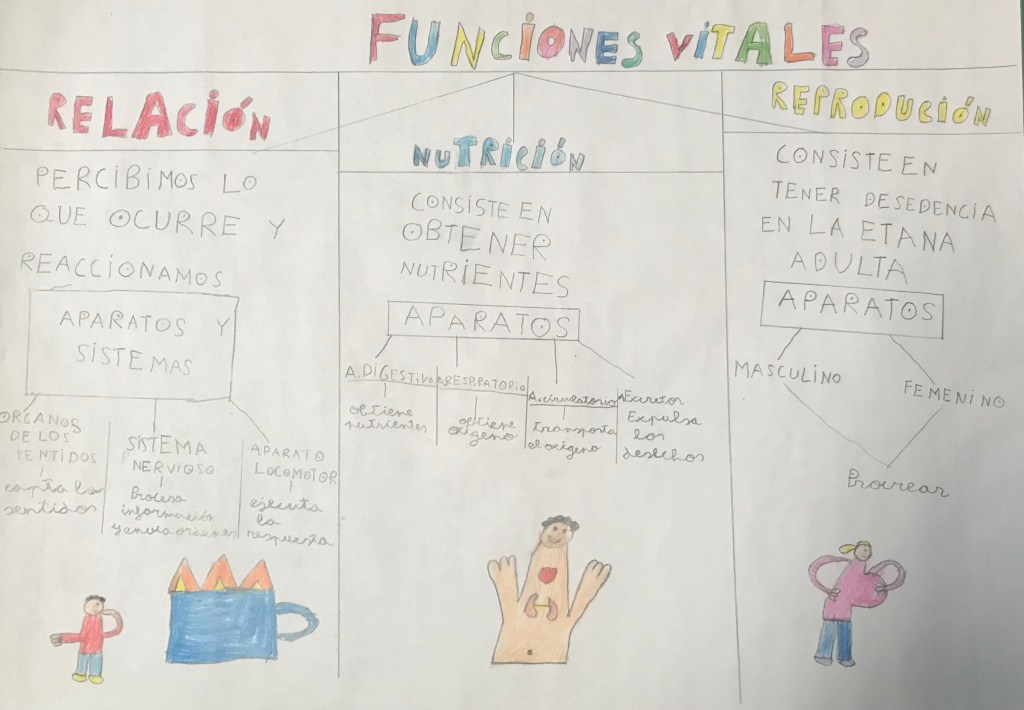 FUNCIONES VITALES
RELACIÓN
PERCIBIMOS LO
QUE OCURRE Y
REACCIONAMOS
APARATOS Y
SISTEMAS
ORGANOS
DE LOS
SENTIDOS
capta los
sentidos
SISTEMA
NERVIOSO
Procesa
información
y envia ordenes
APARATO
LOCOMOTOR
ejecuta
la
respuesta
NUTRICIÓN
CONSISTE EN
OBTENER
NUTRIENTES
APARATOS
A.DIGESTIVO
obtiene
nutrientes
A.RESP.PATORIO
obtiene
oxigeno
A.circulatorio
transporta
el oxigeno
A.Excretor
Expulsa
los
desechos
REPRODUCIÓN
CONSISTE EN
TENER DESEDENCIA
EN LA ETANA
ADULTA
APARATOS
MASCULINO
FEMENINO
Procrear